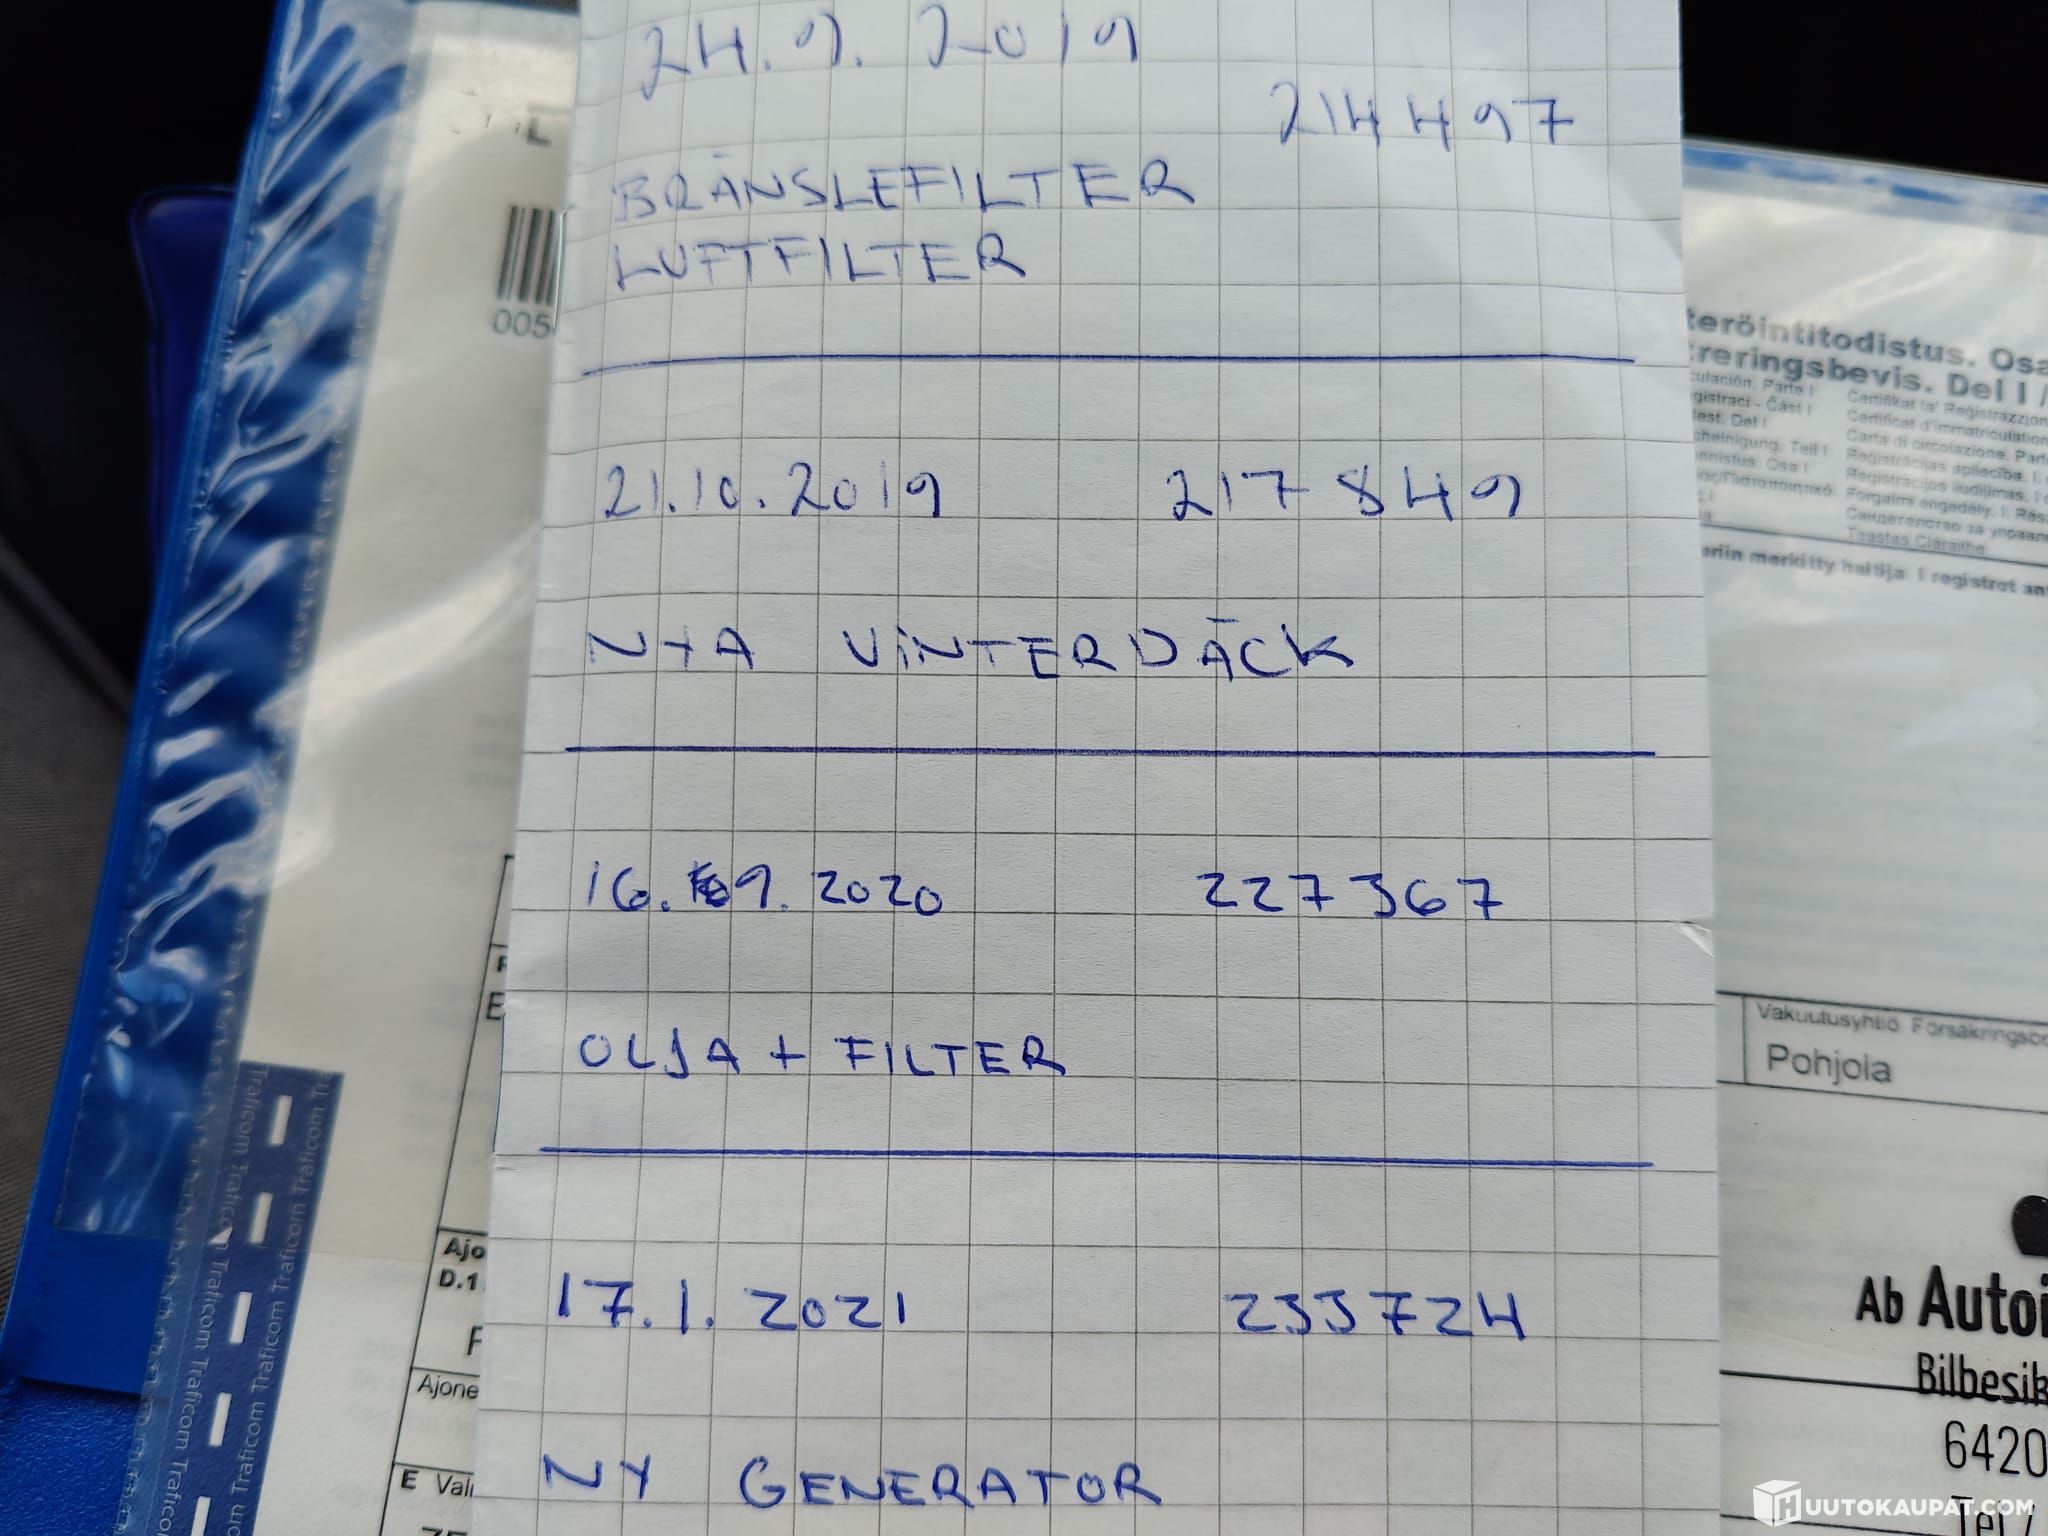 24.9.2019
214497
BRÄNSLEFILTER
LUFTFILTER
21.10.2019 217849
NYA VINTERDÄCK
16.9.2020 227367
OLJA + FILTER
17.1.2021 233724
NY GENERATOR
005
teröintitodistus. Osa
reringsbevis. Del I /
culación. Parte I
Certifikat ta' Reġistrazzjoni
gistraci - Část I
Certificat d'immatriculation
est. Del I
Carta di circolazione. Parte
cheinigung. Teil I
Reģistrācijas apliecība. I.
nnistus. Osa I
Registracijos liudijimas. I
Forgalmi engedély. I. Rész
Свидетелство за
Teastas Cláraithe
eriin merkitty haltija I registret ant
Vakuutusyhtiö Försäkringsbo
Pohjola
Ab Autoi
Bilbesik
6420
Tel /
Ajo
D.1
F
Ajone
E Val
Traficom Traficom Traficom Traficom
HUUTOKAUPAT.COM